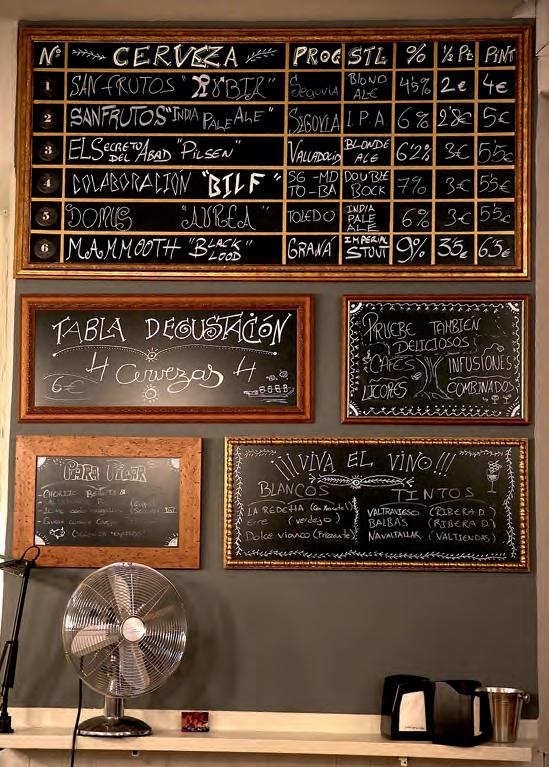 Nº CERVEZA PROC STL % ½ Pt PINT
1 SANFRUTOS "RUBIA" SEGOVIA BLOND ALE 4'5% 2€ 4€
2 SANFRUTOS "INDIA PALE ALE" SEGOVIA I.P.A. 6% 2'8€ 5€
3 EL SECRETO DEL ABAD "PILSEN" VALLADOLID BLONDE ALE 6'2% 3€ 5'5€
4 COLABORACIÓN "BILF" SG-MD TO-BA DOUBLE BOCK 7% 3€ 5'5€
5 DOMUS "AUREA" TOLEDO INDIA PALE ALE 6% 3€ 5'5€
6 MAMMOOTH "BLACK LOOD" GRANA IMPERIAL STOUT 9% 3'5€ 6'5€
TABLA DEGUSTACIÓN
4 Cervezas 4
6€
PRUEBE TAMBIÉN
DELICIOSOS!
CAFÉS INFUSIONES
LICORES COMBINADOS
PARA PICAR
- CHORIZO
¡¡¡VIVA EL VINO!!!
BLANCOS TINTOS
LA REDECHA VALTRAVIESO (RIBERA D.)
Erre (verdejo) BALBAS (RIBERA D.)
Dolce vianco (Frizzante) NAVALTALLAR (VALTIENDAS)